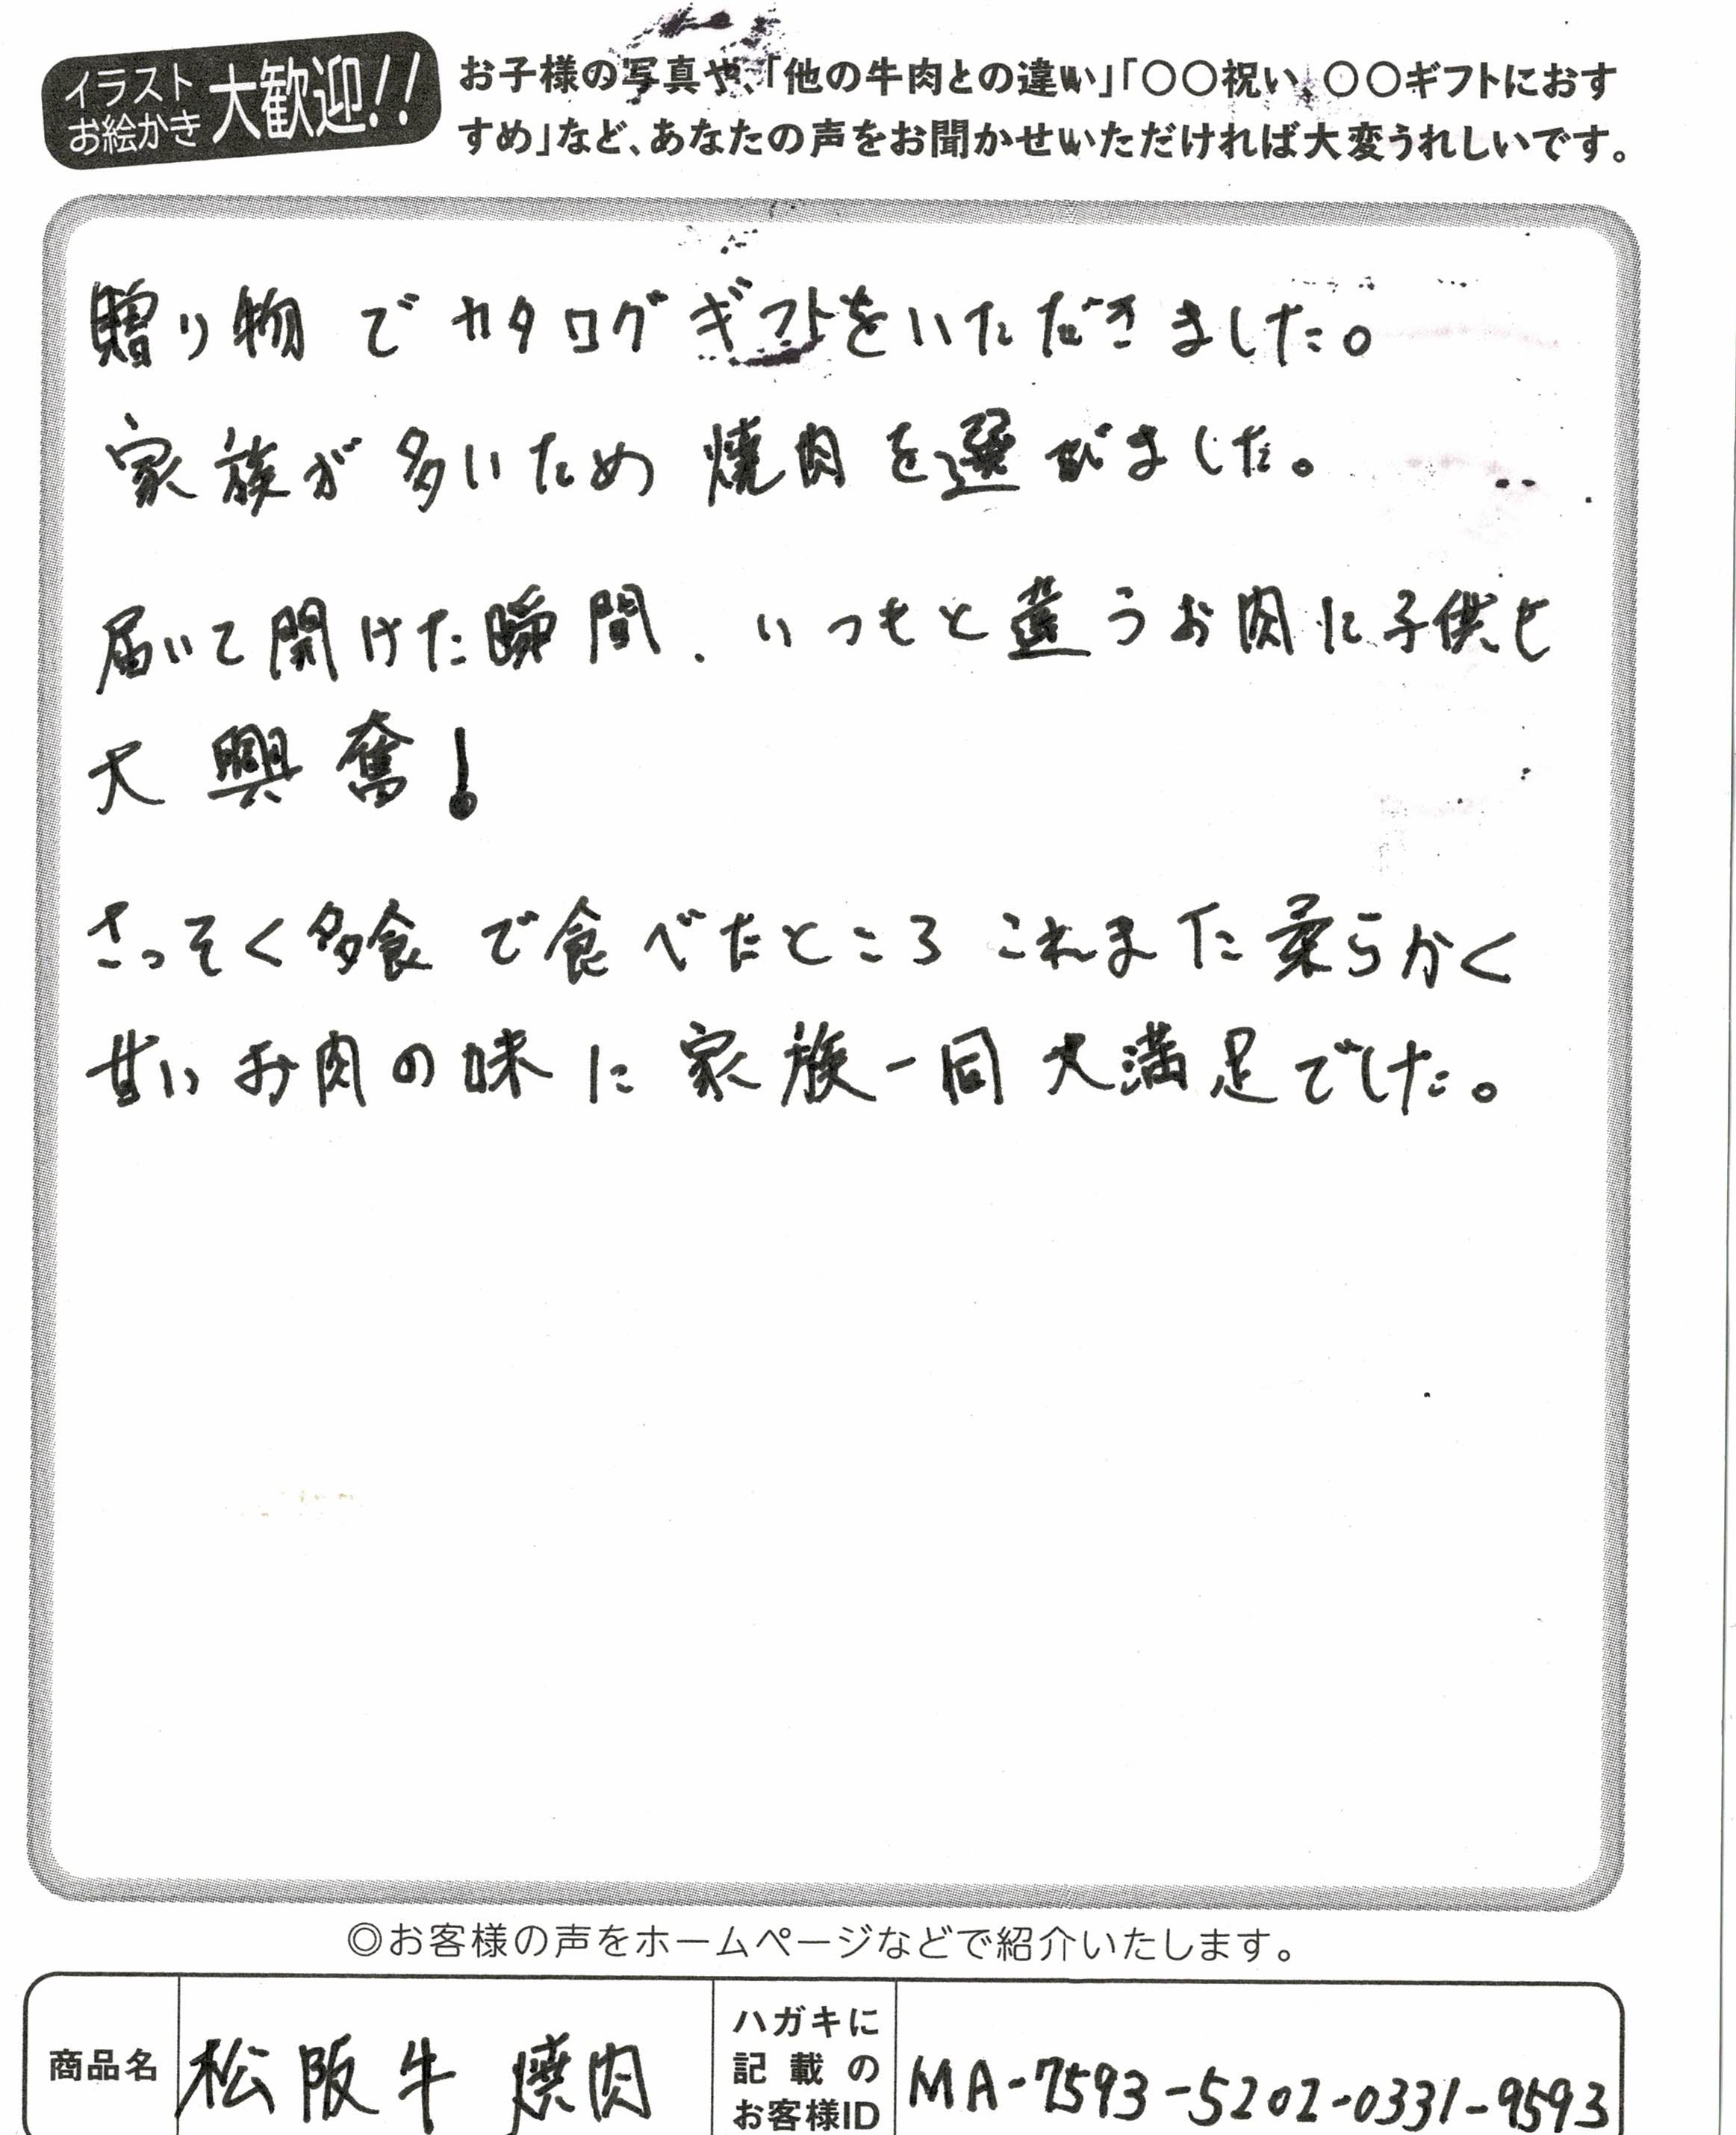 イラスト
お絵かき
大歓迎!!
お子様の写真や、「他の牛肉との違い」「〇〇祝い、〇〇ギフトにおす
すめ」など、あなたの声をお聞かせいただければ大変うれしいです。
贈り物でカタログギフトをいただきました。
家族が多いため焼肉を選びました。
届いて開けた瞬間、いつもと違うお肉に子供も
大興奮!
さっそく夕食で食べたところこれまた柔らかく
甘いお肉の味に家族一同大満足でした。
◎お客様の声をホームページなどで紹介いたします。
商品名
松阪牛 焼肉
ハガキに
記載の
お客様ID
MA-7593-5202-0331-9593